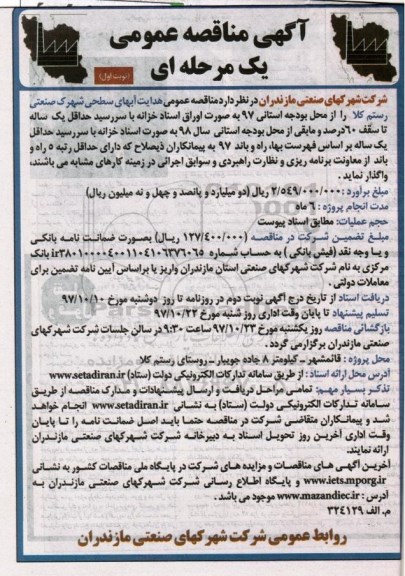 آگهی مناقصه عمومی
یک مرحله ای
(نوبت اول)
شرکت شهرکهای صنعتی مازندران در نظر دارد مناقصه عمومی هدایت آبهای سطحی شهرک صنعتی
رستم کلا را از محل بودجه استانی ۹۷ به صورت اوراق اسناد خزانه با سررسید حداقل یک ساله
تا سقف ۶۰ درصد و مابقی از محل بودجه استانی سال ۹۸ به صورت اسناد خزانه با سررسید حداقل
یک ساله بر اساس فهرست بها، راه و باند ۹۷ به پیمانکاران ذیصلاح که دارای حداقل رتبه ۵ راه و
باند از معاونت برنامه ریزی و نظارت راهبردی و سوابق اجرائی در زمینه کارهای مشابه می باشند،
واگذار نماید.
مبلغ برآورد : ۲/۵۴۹/۰۰۰/۰۰۰ ریال (دو میلیارد و پانصد و چهل و نه میلیون ریال)
مدت انجام پروژه : ۶ ماه
حجم عملیات: مطابق اسناد پیوست
مبلغ تضمین شرکت در مناقصه (۱۲۷/۴۰۰/۰۰۰ ریال) بصورت ضمانت نامه بانکی
و یا وجه نقد (فیش بانکی) به حساب شماره ir۳۸۰۱۰۰۰۰۴۰۰۱۱۰۴۱۰۶۳۷۶۰۶۵ بانک
مرکزی به نام شرکت شهرکهای صنعتی استان مازندران واریز یا براساس آیین نامه تضمین برای
معاملات دولتی.
دریافت اسناد از تاریخ درج آگهی نوبت دوم در روزنامه تا روز دوشنبه مورخ ۹۷/۱۰/۱۰
تسلیم پیشنهاد تا پایان وقت اداری روز شنبه مورخ ۹۷/۱۰/۲۲
بازگشائی مناقصه روز یکشنبه مورخ ۹۷/۱۰/۲۳ ساعت ۹:۳۰ در سالن جلسات شرکت شهرکهای
صنعتی مازندران برگزار می گردد.
محل پروژه : قائمشهر - کیلومتر ۸ جاده جویبار - روستای رستم کلا
آدرس محل ارائه اسناد : از طریق سامانه تدارکات الکترونیکی دولت (ستاد) www.setadiran.ir
تذکر بسیار مهم: تمامی مراحل دریافت و ارسال پیشنهادات و مدارک مناقصه از طریق
سامانه تدارکات الکترونیکی دولت (ستاد) به نشانی www.setadiran.ir انجام خواهد
شد و پیمانکاران متقاضی شرکت در مناقصه حتما باید اصل ضمانت نامه را تا پایان
وقت اداری آخرین روز تحویل اسناد به دبیرخانه شرکت شهرکهای صنعتی مازندران
ارائه نمایند.
آخرین آگهی های مناقصات و مزایده های شرکت در پایگاه ملی مناقصات کشور به نشانی
www.iets.mporg.ir و پایگاه اطلاع رسانی شرکت شهرکهای صنعتی مازندران به
آدرس : www.mazandiec.ir موجود می باشد.
م. الف ۳۲۴۱۲۹
روابط عمومی شرکت شهرکهای صنعتی مازندران